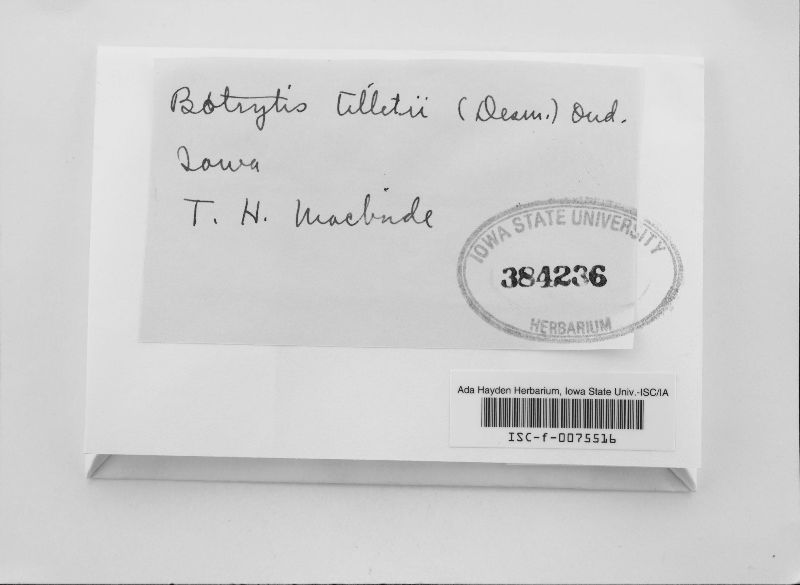 Botrytis tilletii (Desm.) Oud.
Iowa
T. H. Macbride
IOWA STATE UNIVERSITY
384236
HERBARIUM
Ada Hayden Herbarium, Iowa State Univ.-ISC/IA
ISC-f-0075516